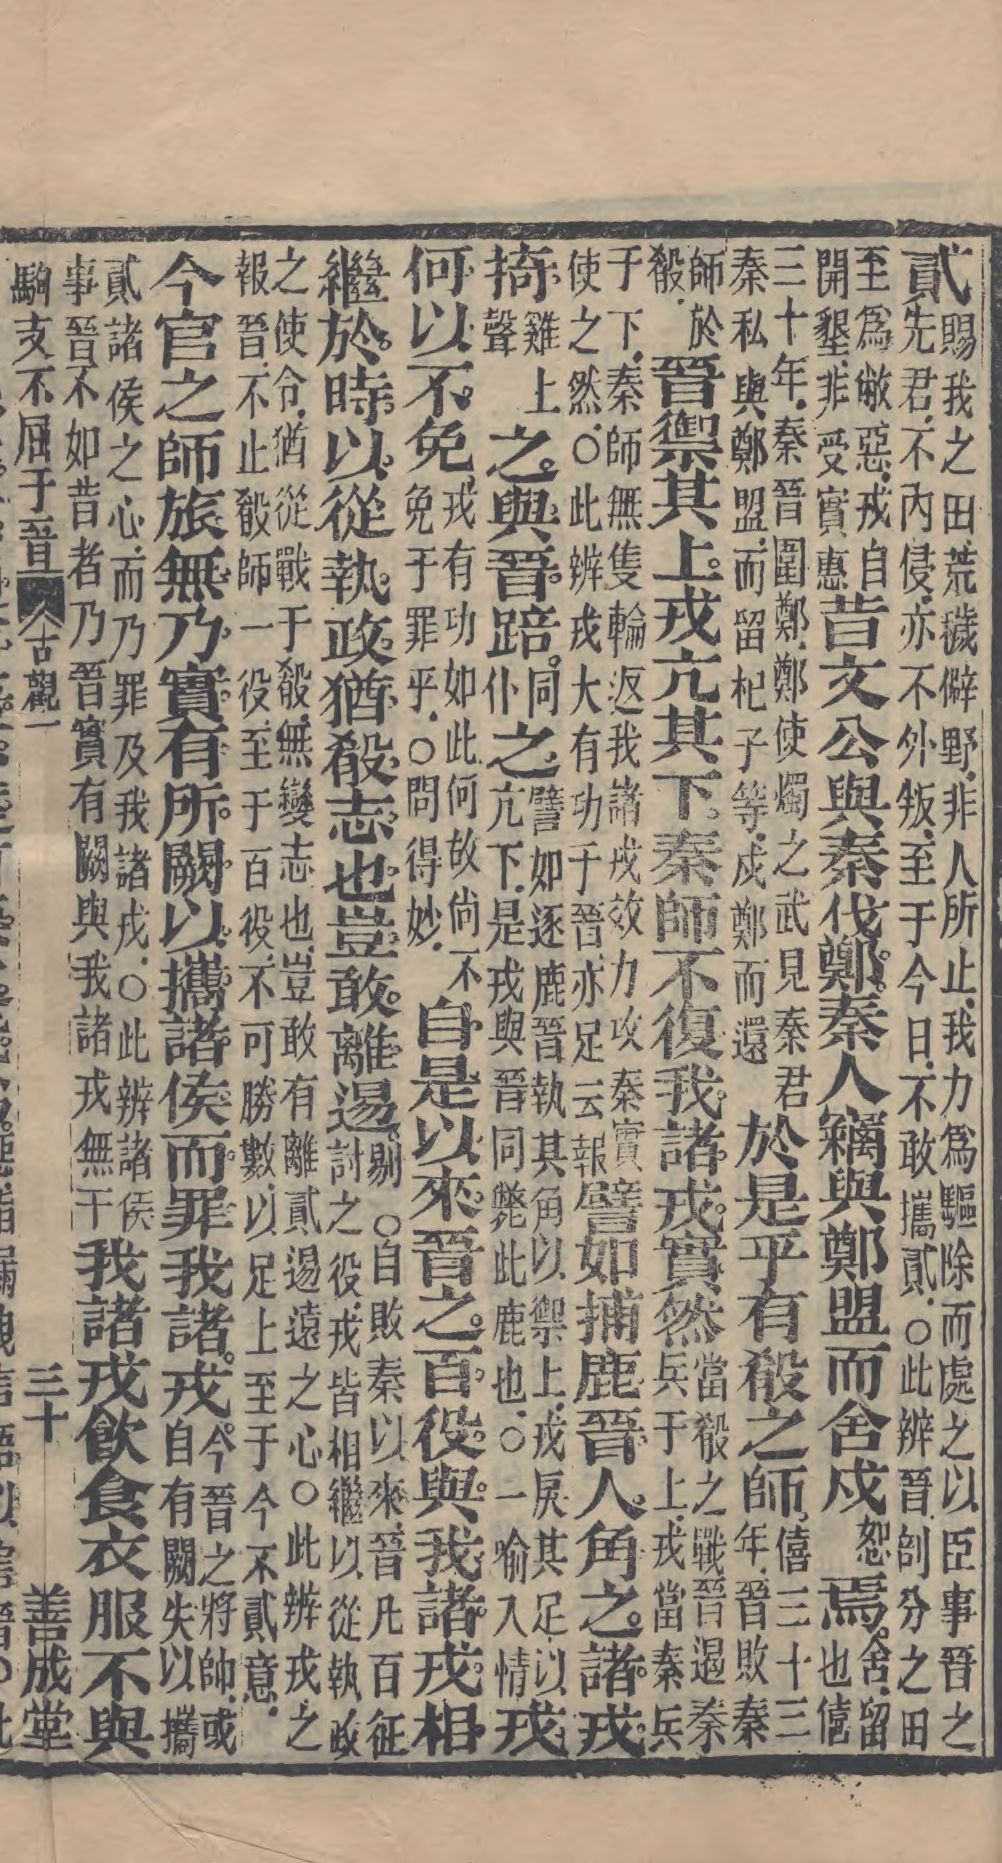 貳賜我之田荒穢僻野非人所止我力爲驅除而處之以臣事晉之
先君不內侵亦不外叛至于今日不敢攜貳○此辨晉剖分之田
至爲敝惡戎自
開墾非受實惠昔文公與秦伐鄭秦人竊與鄭盟而舍戍恕焉舍留也僖
三十年秦晉圍鄭鄭使燭之武見秦君
秦私與鄭盟而留杞子等戍鄭而還於是乎有殽之師僖三十三年晉敗秦
師於殽晉禦其上戎亢其下秦師不復我諸戎實然當殽之戰晉遏秦兵于上戎當秦兵
于下秦師無隻輪返我諸戎效力攻秦實
使之然○此辨戎大有功于晉亦足云報譬如捕鹿晉人角之諸戎
掎雞上聲之與晉踣同仆之譬如逐鹿晉執其角以禦上戎戾其足以亢下是戎與晉同斃此鹿也○一喻入情戎
何以不免戎有功如此何故尚不免于罪乎○問得妙自是以來晉之百役與我諸戎相
繼於時以從執政猶殽志也豈敢離逷剔○自敗秦以來晉凡百征討之役戎皆相繼以從執政
之使令猶從戰于殽無變志也豈敢有離貳逷遠之心○此辨戎之
報晉不止殽師一役至于百役不可勝數以足上至于今不貳意
今官之師旅無乃實有所闕以攜諸侯而罪我諸戎今晉之將帥或自有闕失以攜
貳諸侯之心而乃罪及我諸戎○此辨諸侯
事晉不如昔者乃晉實有闕與我諸戎無干我諸戎飲食衣服不與
駒支不屈于晉 古觀一 三十 善成堂